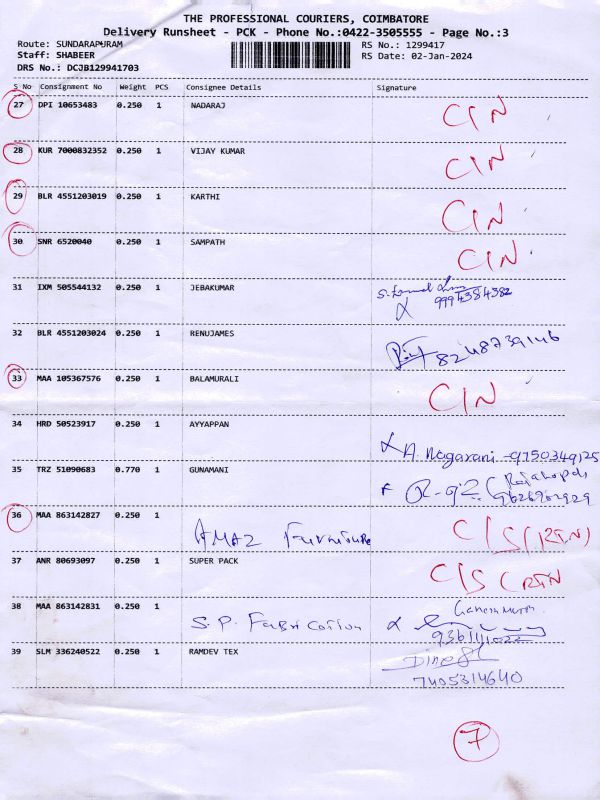 THE PROFESSIONAL COURIERS, COIMBATORE
Delivery Runsheet - PCK - Phone No.:0422-3505555 - Page No.:3
Route: SUNDARAPURAM RS No.: 1299417
Staff: SHABEER RS Date: 02-Jan-2024
DRS No.: DCJB129941703
S No Consignment No Weight PCS Consignee Details Signature
27 DPI 10653483 0.250 1 NADARAJ CIN
28 KUR 7000832352 0.250 1 VIJAY KUMAR CIN
29 BLR 4551203019 0.250 1 KARTHI CIN
30 SNR 6520040 0.250 1 SAMPATH CIN
31 IXM 505544132 0.250 1 JEBAKUMAR
9994384382
32 BLR 4551203024 0.250 1 RENUJAMES
8248739146
33 MAA 105367576 0.250 1 BALAMURALI CIN
34 HRD 50523917 0.250 1 AYYAPPAN
A. Nagarani - 9750349125
35 TRZ 51090683 0.770 1 GUNAMANI
9626962929
36 MAA 863142827 0.250 1 AMAZ Furniture C/S (RTN)
37 ANR 80693097 0.250 1 SUPER PACK C/S (RTN
38 MAA 863142831 0.250 1 S.P. Fabrication
9361111022
39 SLM 336240522 0.250 1 RAMDEV TEX Dinesh
7405314640
7